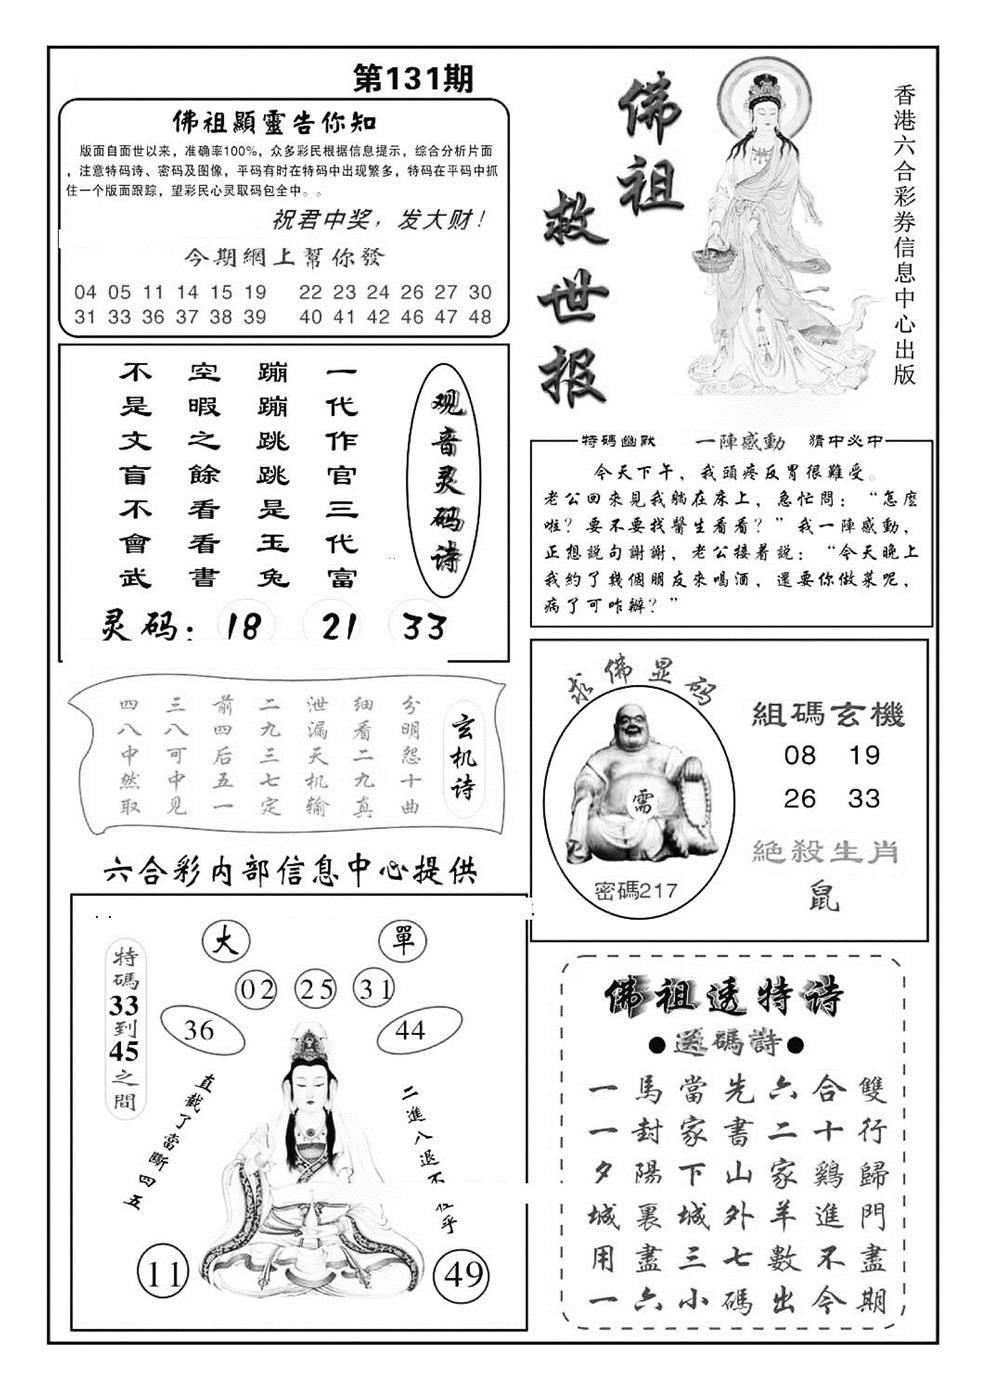 第131期
佛祖顯靈告你知
版面自面世以来，准确率100%，众多彩民根据信息提示，综合分析片面
，注意特码诗、密码及图像，平码有时在特码中出现繁多，特码在平码中抓
住一个版面跟踪，望彩民心灵取码包全中。。
祝君中奖，发大财！
今期網上幫你發
04 05 11 14 15 19 22 23 24 26 27 30
31 33 36 37 38 39 40 41 42 46 47 48
佛祖
救世报
香港六合彩券信息中心出版
观音灵码诗
一代作官三代富
蹦蹦跳跳是玉兔
空暇之餘看看書
不是文盲不會武
灵码：18 21 33
特碼幽默 一陣感動 猜中必中
今天下午，我頭疼反胃很難受。
老公回來見我躺在床上，急忙問：“怎麼
啦？要不要找醫生看看？”我一陣感動，
正想説句謝謝，老公接着説：“今天晚上
我約了幾個朋友來喝酒，還要你做菜呢，
病了可咋辦？”
玄机诗
分明怨十曲
细看二九真
泄漏天机输
二九三七定
前四后五一
三八可中见
四八中然取
求佛显码
需
密碼217
組碼玄機
08 19
26 33
絕殺生肖
鼠
六合彩内部信息中心提供
特碼33到45之間
大 單
02 25 31
36 44
直截了當斷四五
二進八退不在乎
11 49
佛祖透特诗
●送碼詩●
一馬當先六合雙
一封家書二十行
夕陽下山家鷄歸
城裏城外羊進門
用盡三七數不盡
一六小碼出今期